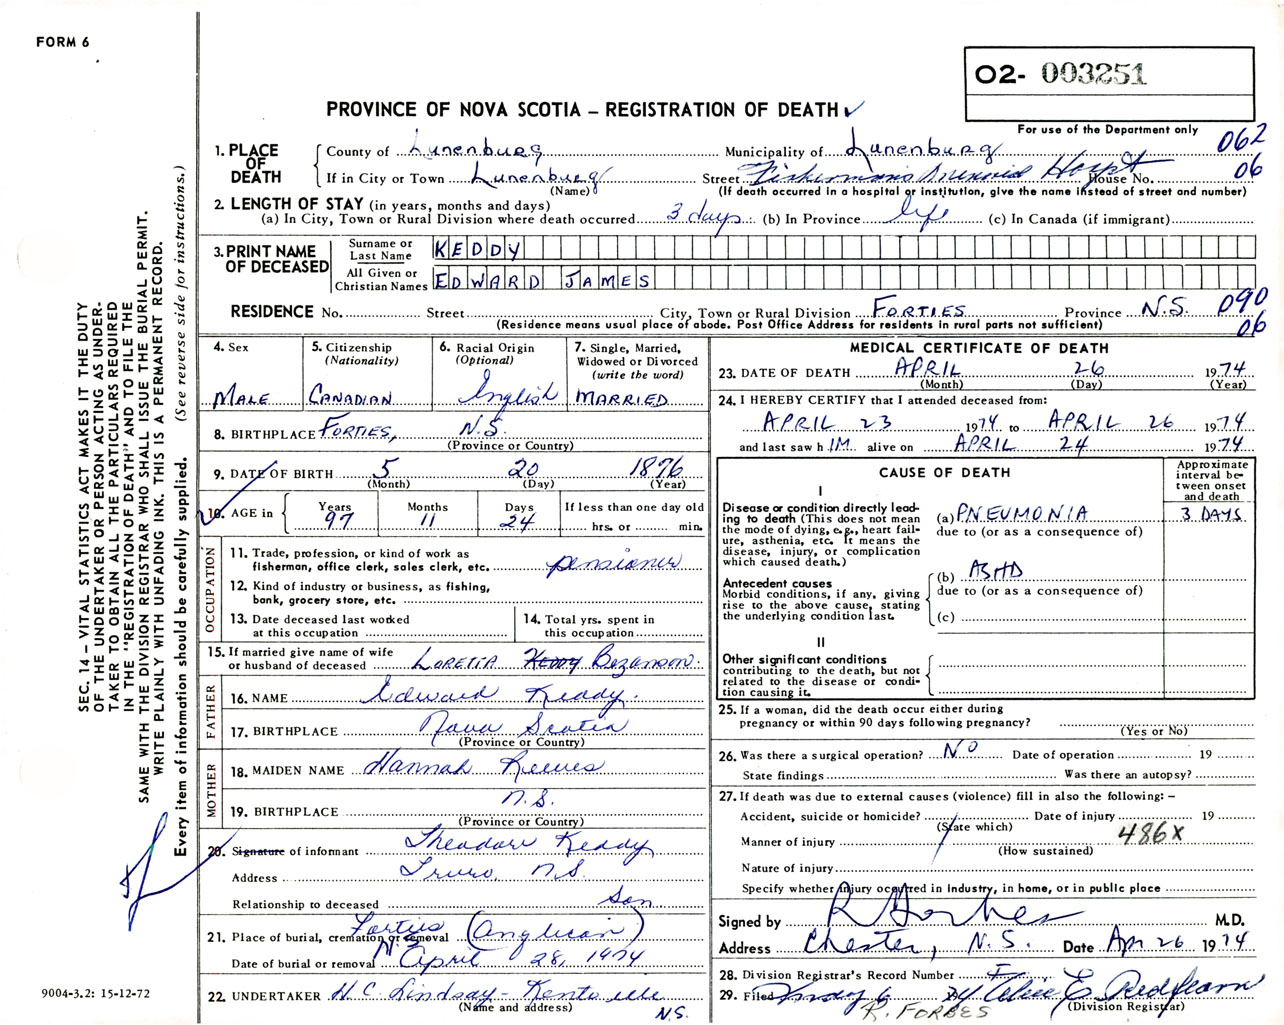 FORM 6
O2- 003251
PROVINCE OF NOVA SCOTIA – REGISTRATION OF DEATH
For use of the Department only
062
06
1. PLACE OF DEATH
County of Lunenburg Municipality of Lunenburg
If in City or Town Lunenburg Street Fisherman's Memorial Hospt House No.
(Name) (If death occurred in a hospital or institution, give the name instead of street and number)
2. LENGTH OF STAY (in years, months and days)
(a) In City, Town or Rural Division where death occurred 3 days (b) In Province life (c) In Canada (if immigrant)
3. PRINT NAME OF DECEASED
Surname or Last Name KEDDY
All Given or Christian Names EDWARD JAMES
RESIDENCE No. Street City, Town or Rural Division FORTIES Province N.S. 090
(Residence means usual place of abode. Post Office Address for residents in rural parts not sufficient) 06
4. Sex
MALE
5. Citizenship
(Nationality)
CANADIAN
6. Racial Origin
(Optional)
English
7. Single, Married,
Widowed or Divorced
(write the word)
MARRIED
8. BIRTHPLACE FORTIES, N.S.
(Province or Country)
9. DATE OF BIRTH 5 20 1876
(Month) (Day) (Year)
10. AGE in
Years Months Days If less than one day old
97 11 24 hrs. or min.
OCCUPATION
11. Trade, profession, or kind of work as
fisherman, office clerk, sales clerk, etc. pensioner
12. Kind of industry or business, as fishing,
bank, grocery store, etc.
13. Date deceased last worked
at this occupation
14. Total yrs. spent in
this occupation
15. If married give name of wife
or husband of deceased LORETTA Keddy Bezanson.
FATHER
16. NAME Edward Keddy.
17. BIRTHPLACE Nova Scotia
(Province or Country)
MOTHER
18. MAIDEN NAME Hannah Reeves
19. BIRTHPLACE N.S.
(Province or Country)
20. Signature of informant Theodore Keddy
Address Truro, N.S.
Relationship to deceased Son
21. Place of burial, cremation or removal Forties (Anglican)
Date of burial or removal April 28, 1974
22. UNDERTAKER H.C. Lindsay - Kentville
(Name and address) N.S.
MEDICAL CERTIFICATE OF DEATH
23. DATE OF DEATH APRIL 26 1974
(Month) (Day) (Year)
24. I HEREBY CERTIFY that I attended deceased from:
APRIL 23 1974 to APRIL 26 1974
and last saw h IM alive on APRIL 24 1974
CAUSE OF DEATH
Approximate interval between onset and death
I
Disease or condition directly lead-
ing to death (This does not mean
the mode of dying, e.g., heart fail-
ure, asthenia, etc. It means the
disease, injury, or complication
which caused death.)
(a) PNEUMONIA 3 DAYS
due to (or as a consequence of)
Antecedent causes
Morbid conditions, if any, giving
rise to the above cause, stating
the underlying condition last.
(b) ASHD
due to (or as a consequence of)
(c)
II
Other significant conditions
contributing to the death, but not
related to the disease or condi-
tion causing it.
25. If a woman, did the death occur either during
pregnancy or within 90 days following pregnancy?
(Yes or No)
26. Was there a surgical operation? NO Date of operation 19
State findings Was there an autopsy?
27. If death was due to external causes (violence) fill in also the following: –
Accident, suicide or homicide? Date of injury 19
(State which)
Manner of injury 486X
(How sustained)
Nature of injury
Specify whether injury occurred in Industry, in home, or in public place
Signed by R Forbes M.D.
Address Chester, N.S. Date Apr 26 1974
28. Division Registrar's Record Number
29. Filed May 6 Alice E Redfearn
(Division Registrar)
R. FORBES
SEC. 14 – VITAL STATISTICS ACT MAKES IT THE DUTY
OF THE UNDERTAKER OR PERSON ACTING AS UNDER-
TAKER TO OBTAIN ALL THE PARTICULARS REQUIRED
IN THE "REGISTRATION OF DEATH" AND TO FILE THE
SAME WITH THE DIVISION REGISTRAR WHO SHALL ISSUE THE BURIAL PERMIT.
WRITE PLAINLY WITH UNFADING INK. THIS IS A PERMANENT RECORD.
Every item of information should be carefully supplied. (See reverse side for instructions.)
9004-3.2: 15-12-72